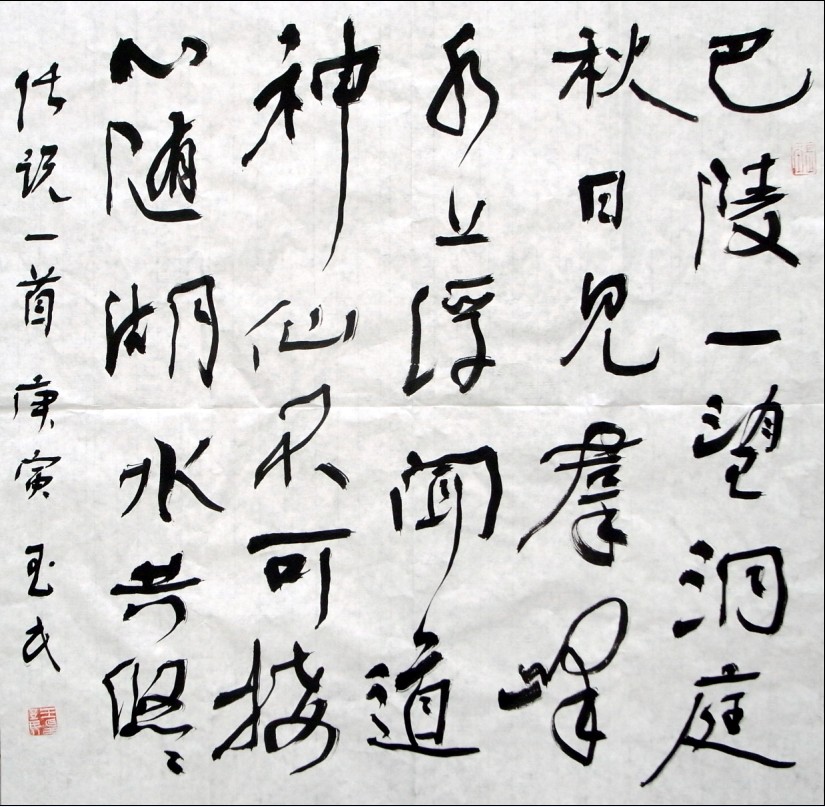 巴陵一望洞庭
秋日见羣峰
水上浮闻道
神仙不可接
心随湖水共悠々
张说一首 庚寅 玉民